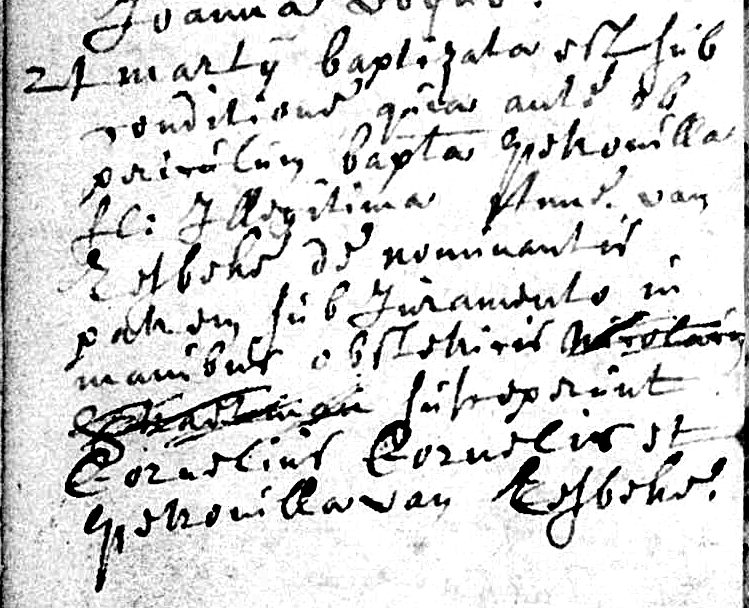 Joanna
21 martij baptizata est sub
conditione quia ante ob
periculum bapta petronilla
fl: Illegitima Anne van
Resbeke denominantis
patrem sub Juramento in
manibus obstetricis
susceperunt
Cornelius Cornelis et
petronilla van Resbeke.